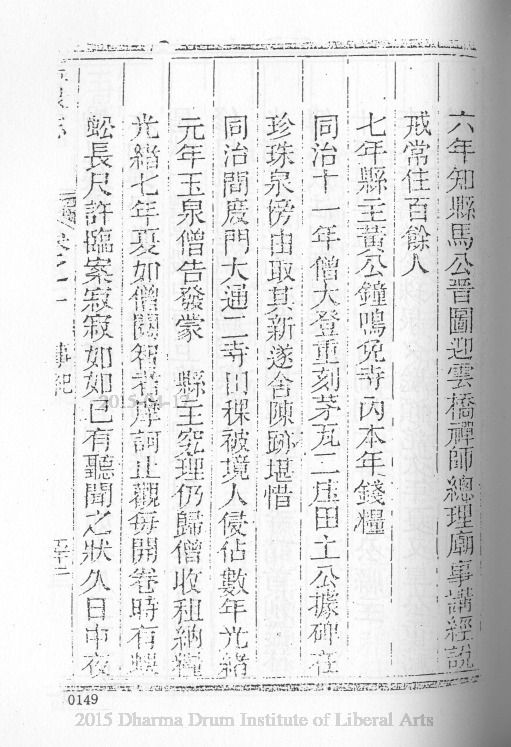 六年知縣馬公晋圖迎雲橋禪師總理廟事講經說
戒常住百餘人
七年縣主黃公鐘鳴免寺內本年錢糧
同治十一年僧大登重刻茅瓦二庄田土公據碑在
珍珠泉傍由取其新遂舍陳跡堪惜
同治間度門大通二寺田稞被境人侵佔數年光緒
元年玉泉僧告發蒙 縣主究理仍歸僧收租納糧
光緒七年夏如僧閱智者摩訶止觀每開卷時有
蚣長尺許臨案寂寂如如已有聽聞之狀久日中夜
事紀
0149
2015 Dharma Drum Institute of Liberal Arts